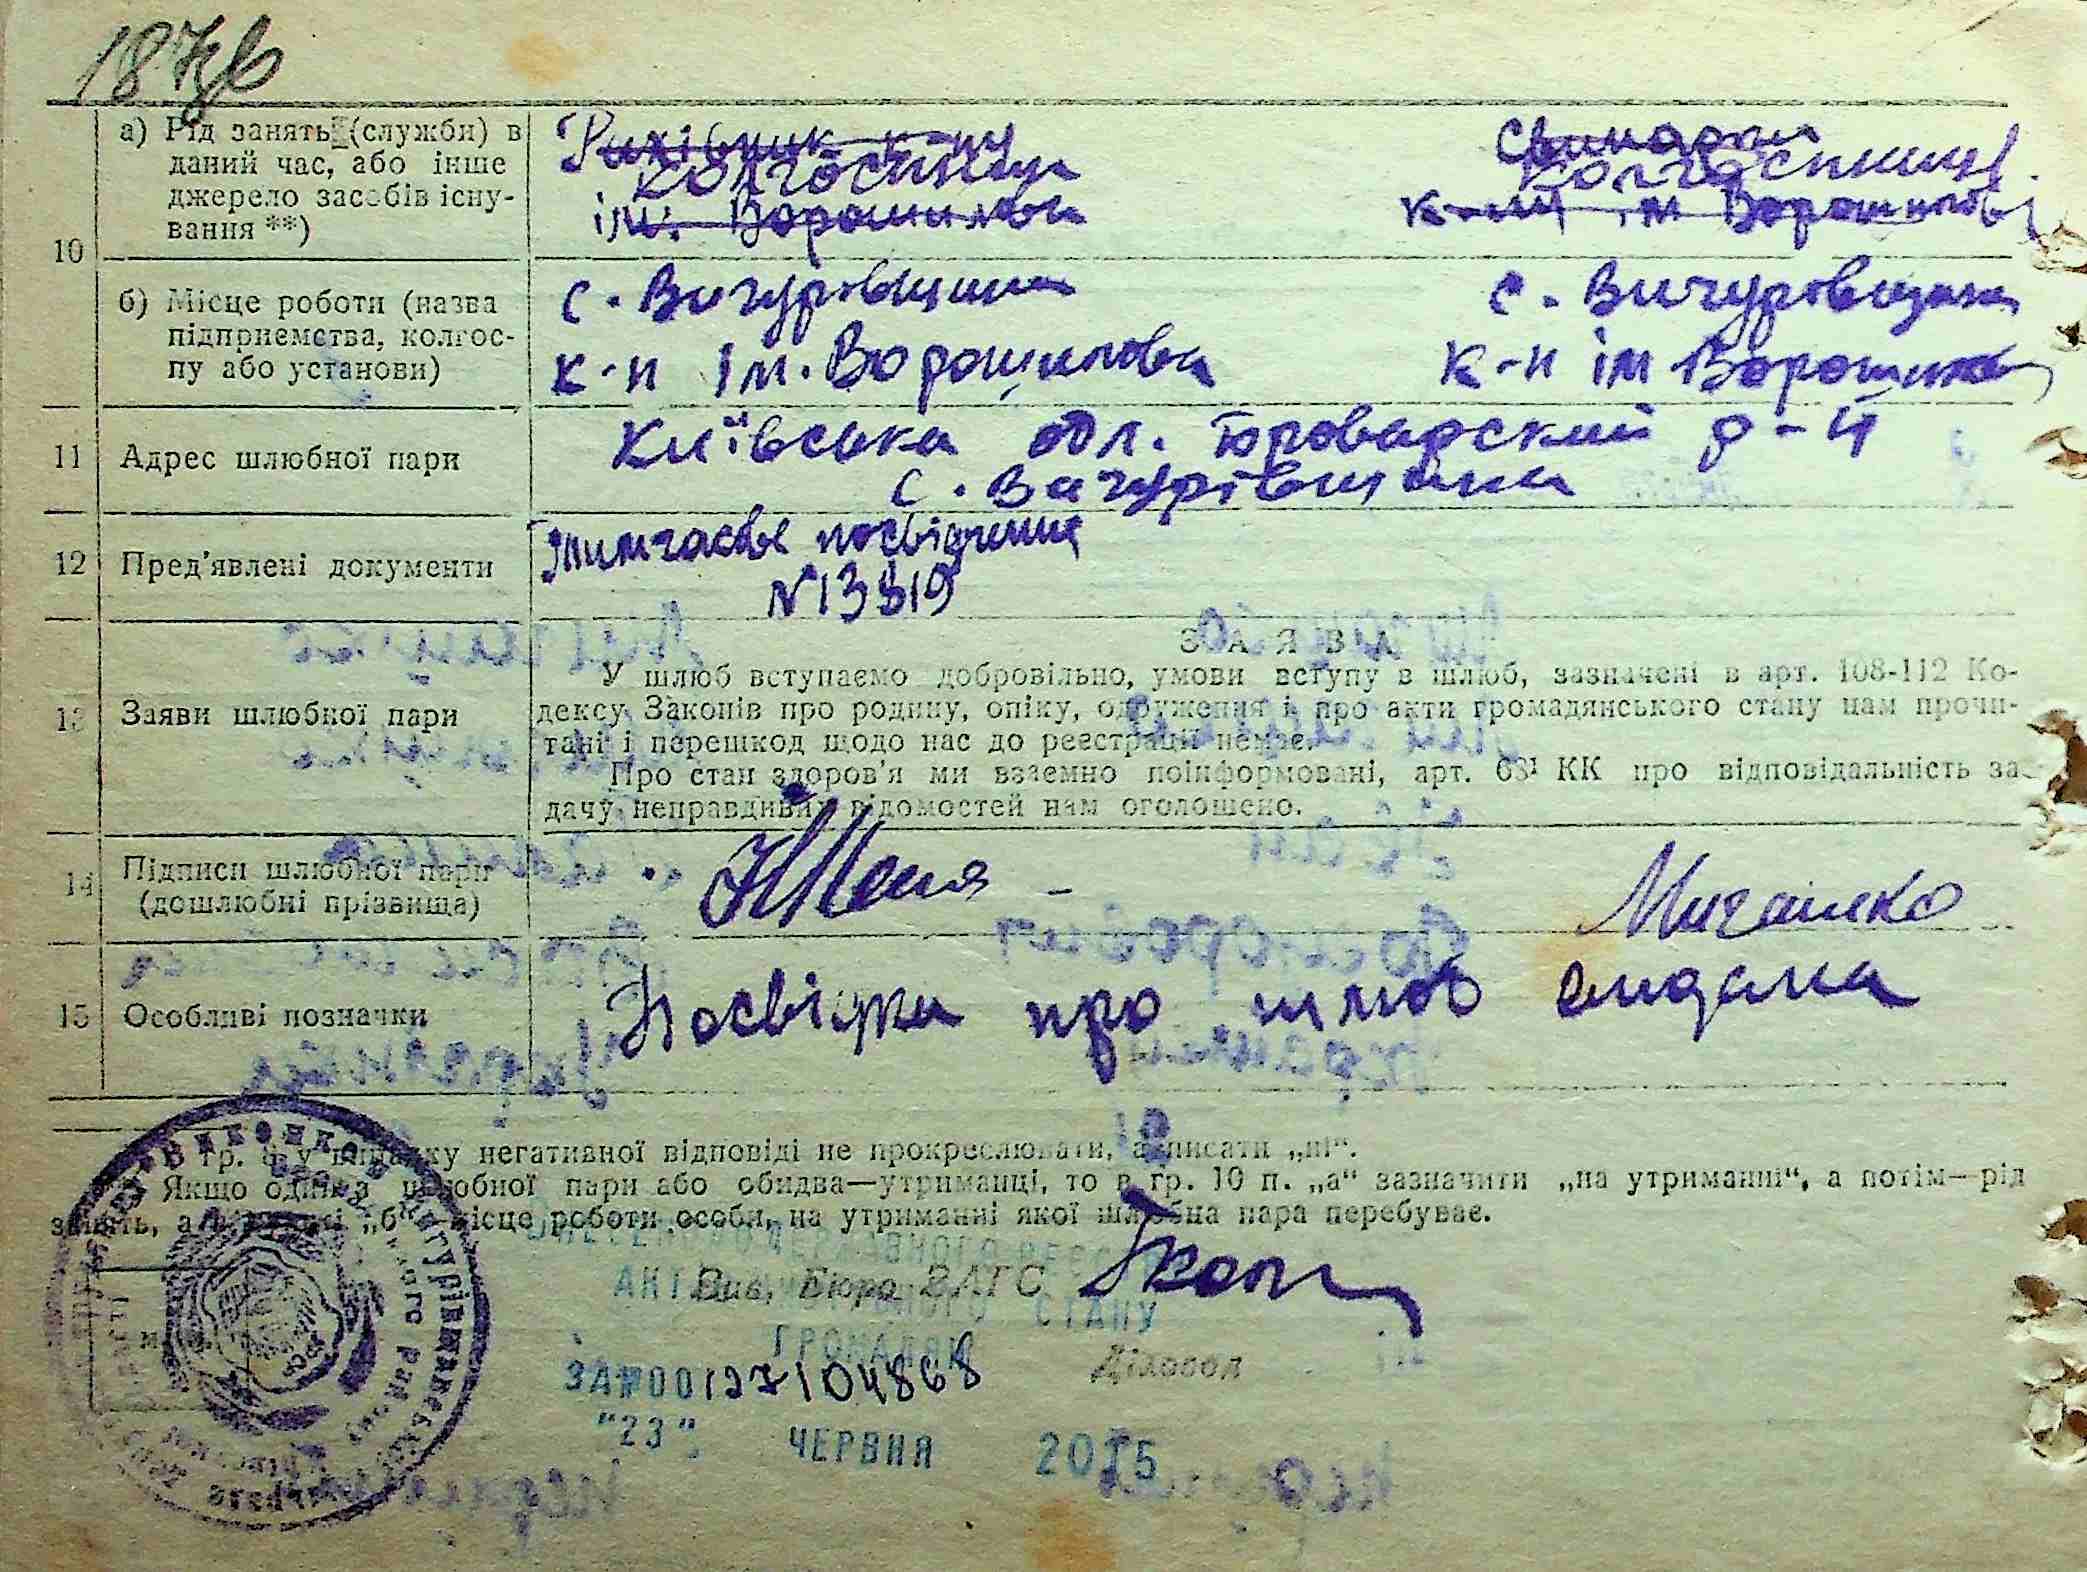 187зв
10
а) Рід занять (службн) в
даний час, або інше
джерело засобів існу-
вання **)
Рахівник к-пу
колгоспниця
ім. Ворошилова
Свинарка
колгоспниця
к-пу ім Ворошилова
б) Місце роботи (назва
підприємства, колгос-
пу або установи)
с. Вигурівщина
к-п ім. Ворошилова
с. Вигуровщина
к-п ім Ворошилова
11
Адрес шлюбної пари
Київська обл. Броварский р-н
с. Вигурівщина
12
Пред'явлені документи
Тимчасове посвідчення
N13819
13
Заяви шлюбної пари
ЗАЯВА
У шлюб вступаємо добровільно, умови вступу в шлюб, зазначені в арт. 108-112 Ко-
дексу Законів про родину, опіку, одруження і про акти громадянського стану нам прочи-
тані і перешкод щодо нас до реєстрації немає.
Про стан здоров'я ми взаємно поінформовані, арт. 68¹ КК про відповідальність за
дачу неправдивих відомостей нам оголошено.
14
Підписи шлюбної пари
(дошлюбні прізвища)
15
Особливі позначки
Посвідка про шлюб видана
гр. 8 у випадку негативної відповіді не прокреслювати, а писати „ні“.
Якщо один з шлюбної пари або обидва—утриманці, то в гр. 10 п. „а“ зазначити „на утриманні“, а потім—рід
занять, а в пункті „б“—місце роботи особи, на утриманні якої шлюбна пара перебуває.
Зав. Бюро ЗАГС
Діловод
АКТІВ ЦИВІЛЬНОГО СТАНУ
ГРОМАДЯН
ЗА №00127104868
"23" ЧЕРВНЯ 2015